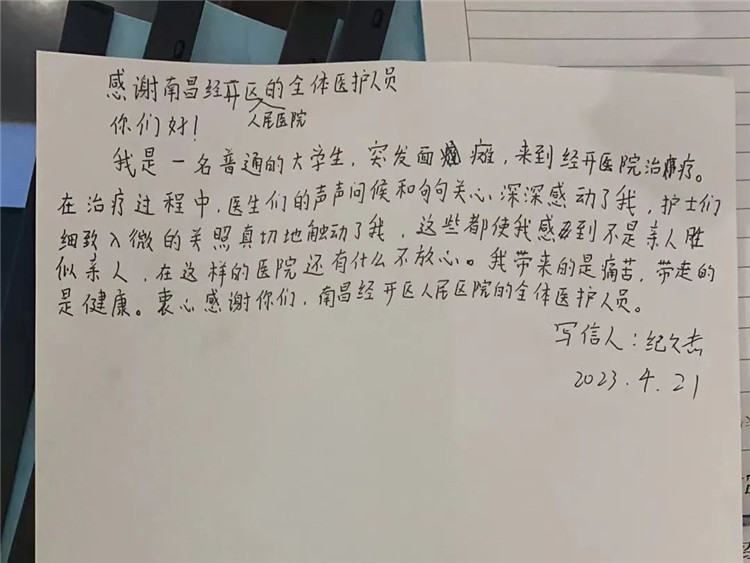 感谢南昌经开区的全体医护人员
人民医院
你们好！
我是一名普通的大学生，突发面瘫，来到经开医院治疗。
在治疗过程中，医生们的声声问候和句句关心深深感动了我，护士们
细致入微的关照真切地触动了我，这些都使我感到不是亲人胜
似亲人，在这样的医院还有什么不放心。我带来的是痛苦，带走的
是健康。衷心感谢你们，南昌经开区人民医院的全体医护人员。
写信人：纪久杰
2023.4.21